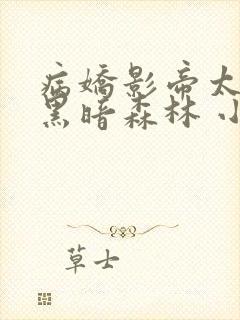 病嬌影帝太
黑暗森林 小
草士